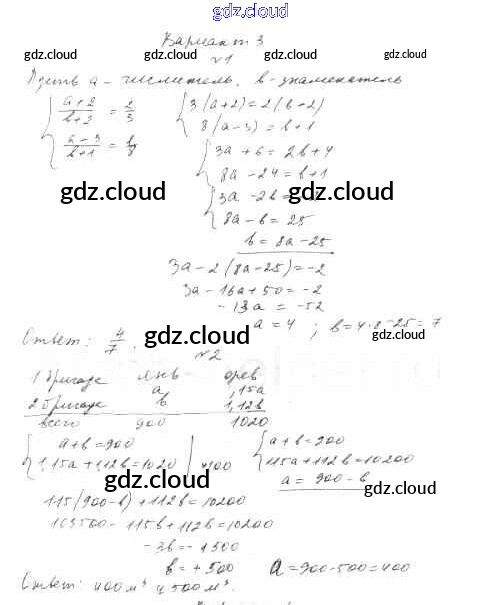 gdz.cloud
Вариант 3
gdz.cloud gdz.cloud gdz.cloud
№1
Пусть a - числитель, b - знаменатель
(a+2)/(b+2) = 2/3 3(a+2)=2(b+2)
(a-3)/(b+1) = 1/8 8(a-3)=b+1
3a+6=2b+4
8a-24=b+1
gdz.cloud gdz.cloud
3a-2b=
8a-b=25
b=8a-25
3a-2(8a-25)=-2
3a-16a+50=-2
-13a=-52
a=4 ; b=4·8-25=7
Ответ: 4/7.
gdz.cloud gdz.cloud
№2
1 бригада a 1,15a
gdz.cloud
2 бригада b 1,12b
всего 900 1020
a+b=900 a+b=900
1,15a+1,12b=1020 |·100 115a+112b=10200
gdz.cloud gdz.cloud
a=900-b
gdz.cloud
115(900-b)+112b=10200
103500-115b+112b=10200
-3b=-1500
b=+500 a=900-500=400
gdz.cloud gdz.cloud
Ответ: 400 м³ и 500 м³.